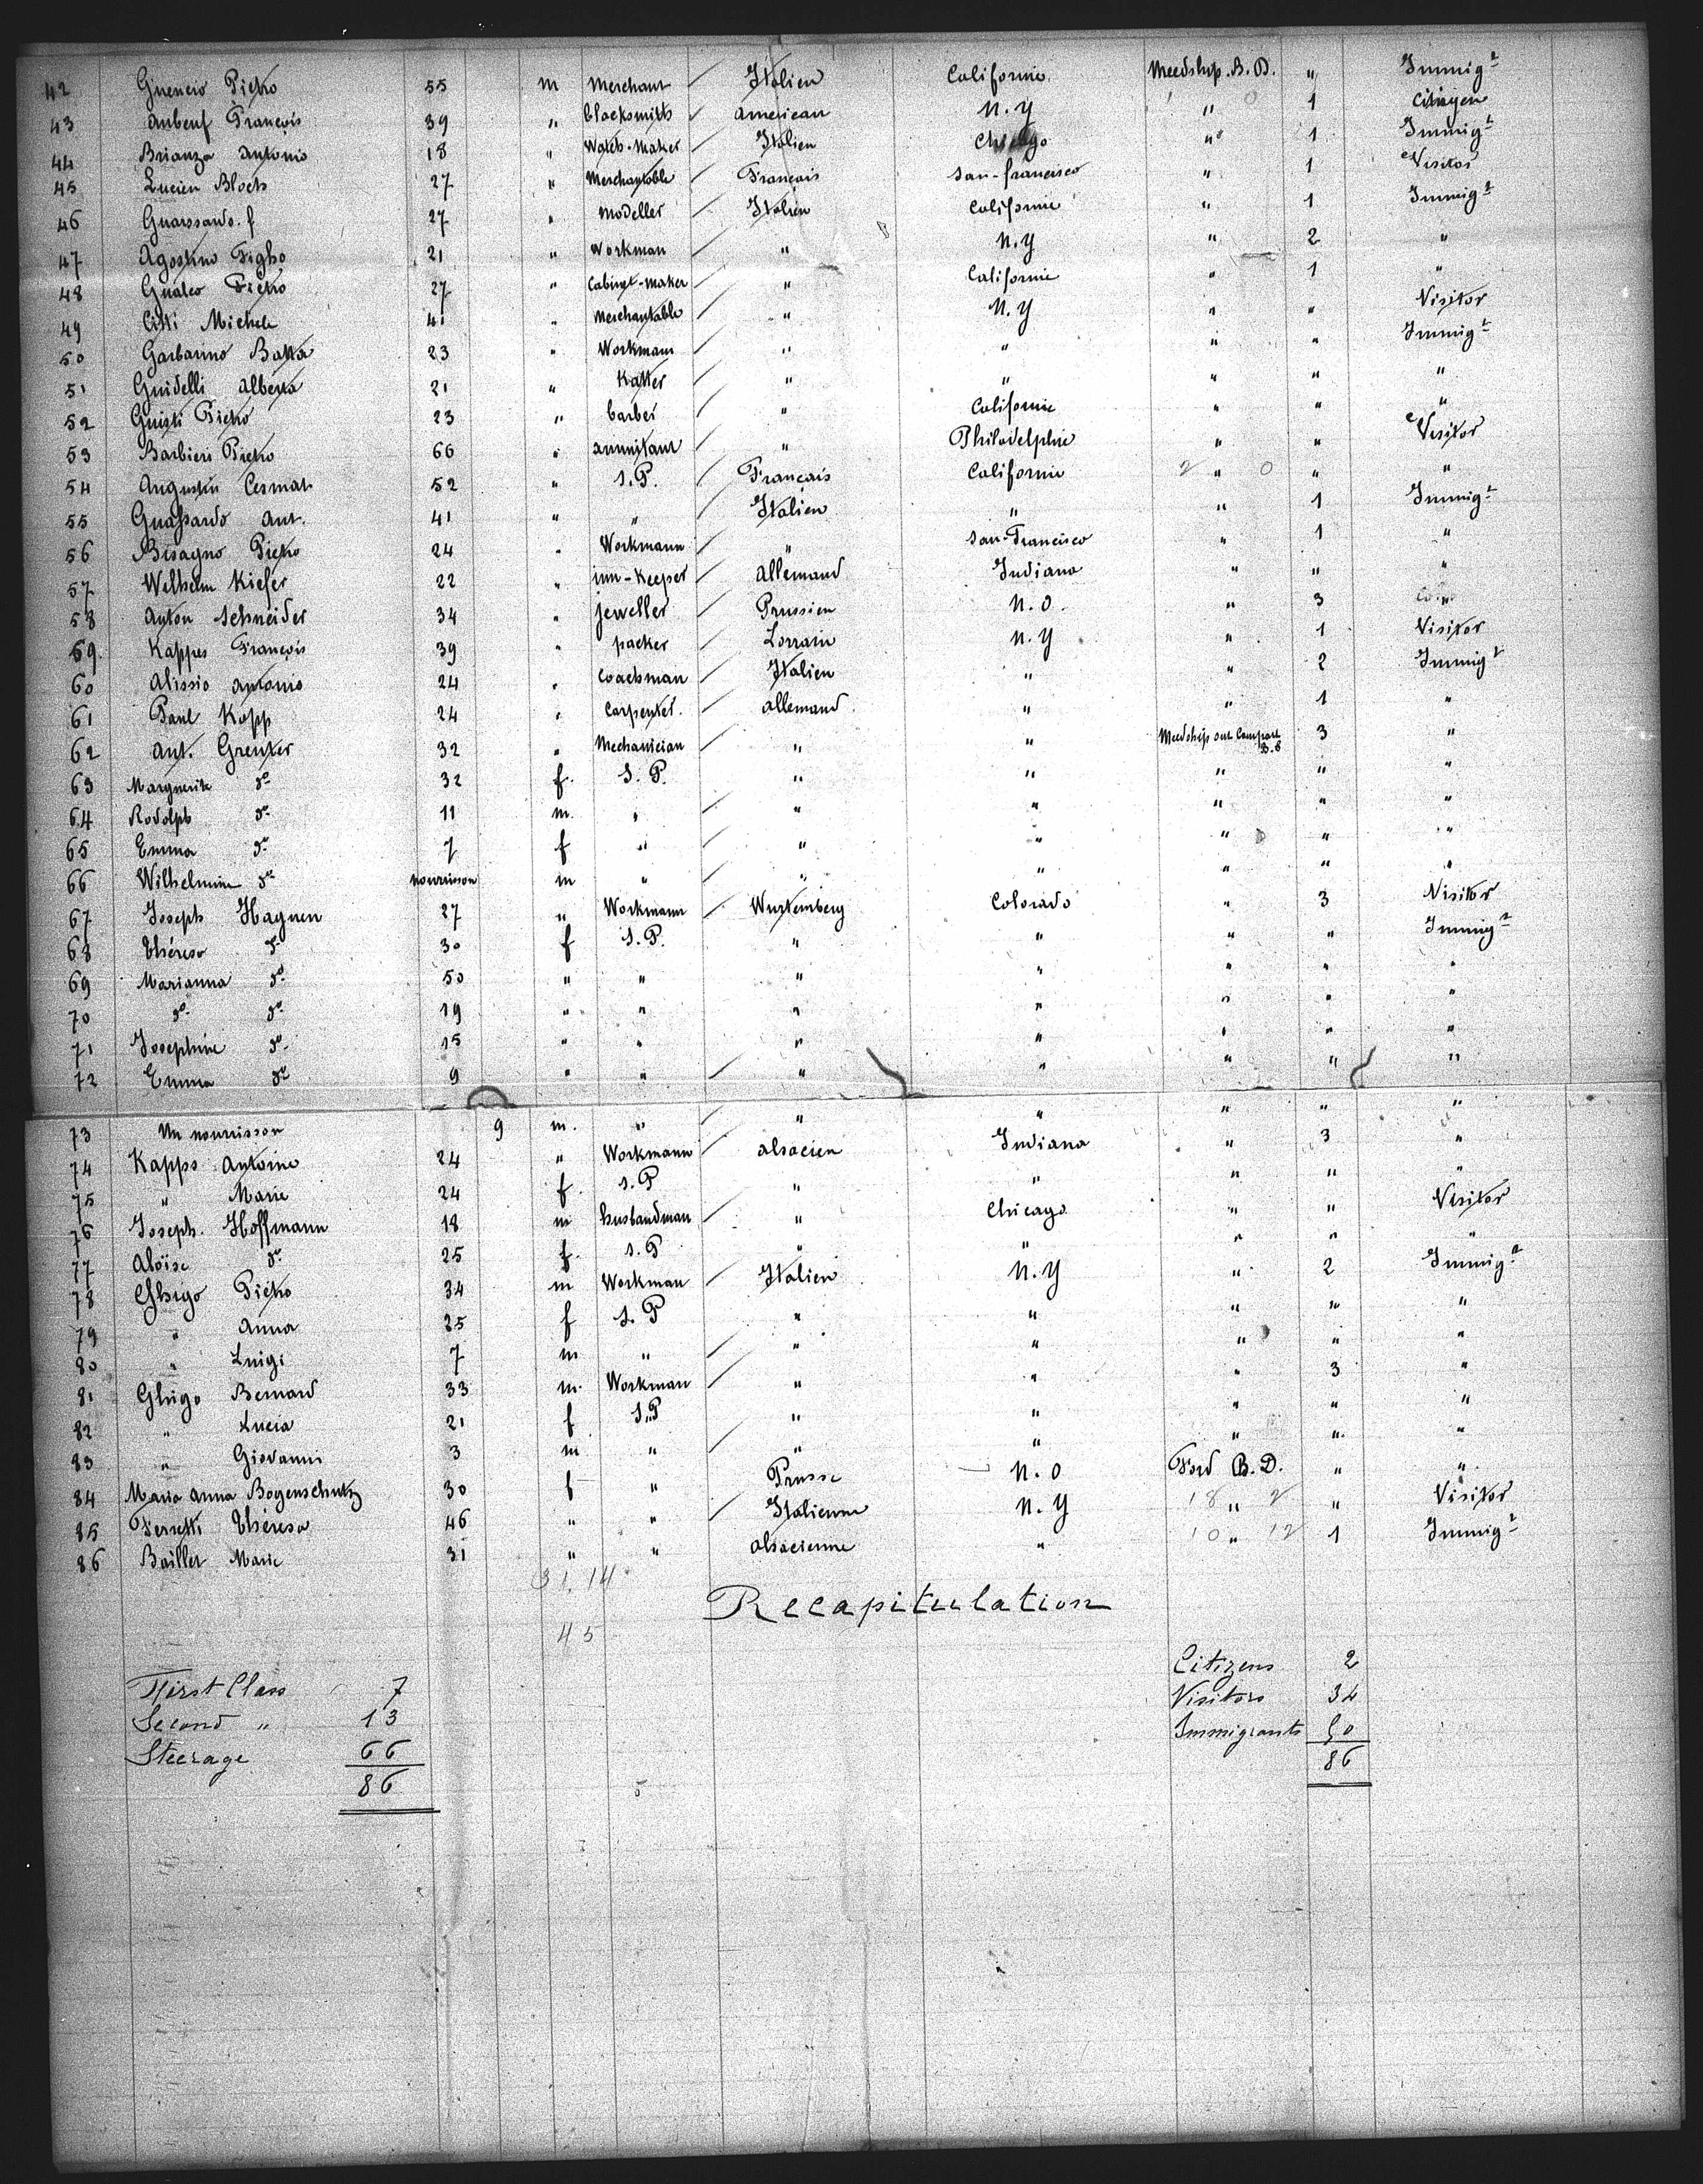 42 Guencio Pietro 55 m Merchant Italien Californie Meedship. B. D. " Immigt
43 Aubeuf François 39 " blacksmith American N.Y " 1 Citizen
44 Brianza Antonio 18 " Watch-Maker Italien Chicago " 1 Immigt
45 Lucien Bloch 27 " Merchantable Français San-francisco " 1 Visitor
46 Guarssardo. f 27 " Modeller Italien Californie " 1 Immigt
47 Agostino Figho 21 " Workman " N.Y " 2 "
48 Gualco Pietro 27 " Cabinet-Maker " Californie " 1 "
49 Citti Michele 41 " Merchantable " N.Y " " Visitor
50 Garbarino Batta 23 " Workmann " " " " Immigt
51 Guidelli Alberta 21 " Katter " " " " "
52 Guisti Pietro 23 " barber " Californie " " "
53 Barbieri Pietro 66 " annuitant " Philadelphie " " Visitor
54 Augustin Cesmat 52 " S.P. Français Californie 2 " 0 " "
55 Guassardo Ant. 41 " " Italien " " 1 Immigt
56 Bisagno Pietro 24 " Workmann " San-Francisco " 1 "
57 Welhelm Kiefer 22 " inn-Keeper Allemand Indiana " " "
58 Anton Schneider 34 " jeweller Prussien N.O. " 3 "
59. Kappes François 39 " packer Lorrain N.Y. " 1 Visitor
60 Alissio Antonio 24 " Coachman Italien " " 2 Immigt
61 Paul Kopp 24 " Carpenter. Allemand. " " 1 "
62 Ant. Grenter 32 " Mechanician " " Meedship out Compart B.C 3 "
63 Marguerite do 32 f. S.P. " " " " "
64 Rodolph do 11 m. " " " " " "
65 Emma do 7 f " " " " " "
66 Wilhelmine do nourrisson m " " " " " "
67 Joseph Hagnen 27 " Workmann Wurtemberg Colorado " 3 Visitor
68 Théresa do 30 f S.P. " " " " Immigt
69 Marianna do 50 " " " " " " "
70 do do 19 " " " " " " "
71 Josephine do 15 " " " " " " "
72 Emma do 9 " " " " " " "
73 Un nourrisson 9 m. " " " " " "
74 Kapps Antoine 24 " Workmann Alsacien Indiana " 3 "
75 " Marie 24 f. S.P " " " " "
76 Joseph. Hoffmann 18 m husbandman " Chicago " " Visitor
77 Aloïse do 25 f. S.P " " " " "
78 Ghigo Pietro 34 m Workman Italien N.Y " 2 Immigt
79 " Anna 25 f S.P " " " " "
80 " Luigi 7 m " " " " " "
81 Ghigo Bernard 33 m. Workman " " " 3 "
82 " Lucia 21 f S.P " " " " "
83 " Giovanni 3 m " " " " " "
84 Maria Anna Bogenschutz 30 f " Prusse N.O Ford B.D. " "
85 Ferretti Théresa 46 " " Italienne N.Y 18 " 2 " Visitor
86 Bailler Marie 31 " " Alsacienne " 10 " 12 1 Immigt
31. 14
Recapitulation
45
Citizens 2
First Class 7 Visitors 34
Second " 13 Immigrants 50
Steerage 66 86
86
5